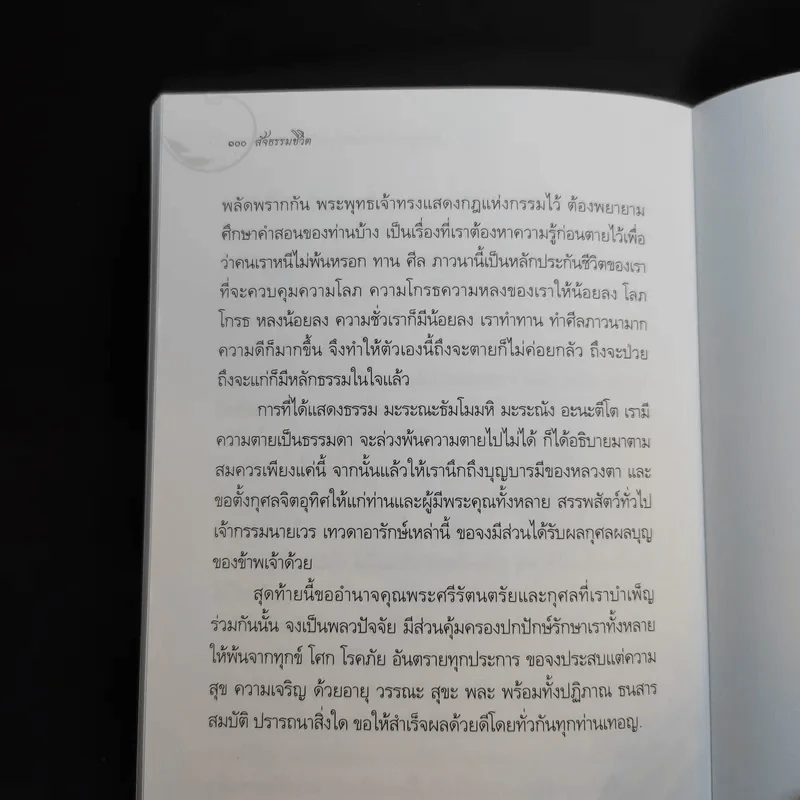 ๑๐๐ สัจธรรมชีวิต
พลัดพรากกัน พระพุทธเจ้าทรงแสดงกฎแห่งกรรมไว้ ต้องพยายาม
ศึกษาคำสอนของท่านบ้าง เป็นเรื่องที่เราต้องหาความรู้ก่อนตายไว้เพื่อ
ว่าคนเราหนีไม่พ้นหรอก ทาน ศีล ภาวนานี้เป็นหลักประกันชีวิตของเรา
ที่จะควบคุมความโลภ ความโกรธความหลงของเราให้น้อยลง โลภ
โกรธ หลงน้อยลง ความชั่วเราก็มีน้อยลง เราทำทาน ทำศีลภาวนามาก
ความดีก็มากขึ้น จึงทำให้ตัวเองนี้ถึงจะตายก็ไม่ค่อยกลัว ถึงจะป่วย
ถึงจะแก่ก็มีหลักธรรมในใจแล้ว
การที่ได้แสดงธรรม มะระณะธัมโมมหิ มะระณัง อะนะตีโต เรามี
ความตายเป็นธรรมดา จะล่วงพ้นความตายไปไม่ได้ ก็ได้อธิบายมาตาม
สมควรเพียงแค่นี้ จากนั้นแล้วให้เรานึกถึงบุญบารมีของหลวงตา และ
ขอตั้งกุศลจิตอุทิศให้แก่ท่านและผู้มีพระคุณทั้งหลาย สรรพสัตว์ทั่วไป
เจ้ากรรมนายเวร เทวดาอารักษ์เหล่านี้ ขอจงมีส่วนได้รับผลกุศลผลบุญ
ของข้าพเจ้าด้วย
สุดท้ายนี้ขออำนาจคุณพระศรีรัตนตรัยและกุศลที่เราบำเพ็ญ
ร่วมกันนั้น จงเป็นพลวปัจจัย มีส่วนคุ้มครองปกปักษ์รักษาเราทั้งหลาย
ให้พ้นจากทุกข์ โศก โรคภัย อันตรายทุกประการ ขอจงประสบแต่ความ
สุข ความเจริญ ด้วยอายุ วรรณะ สุขะ พละ พร้อมทั้งปฏิภาณ ธนสาร
สมบัติ ปรารถนาสิ่งใด ขอให้สำเร็จผลด้วยดีโดยทั่วกันทุกท่านเทอญ.